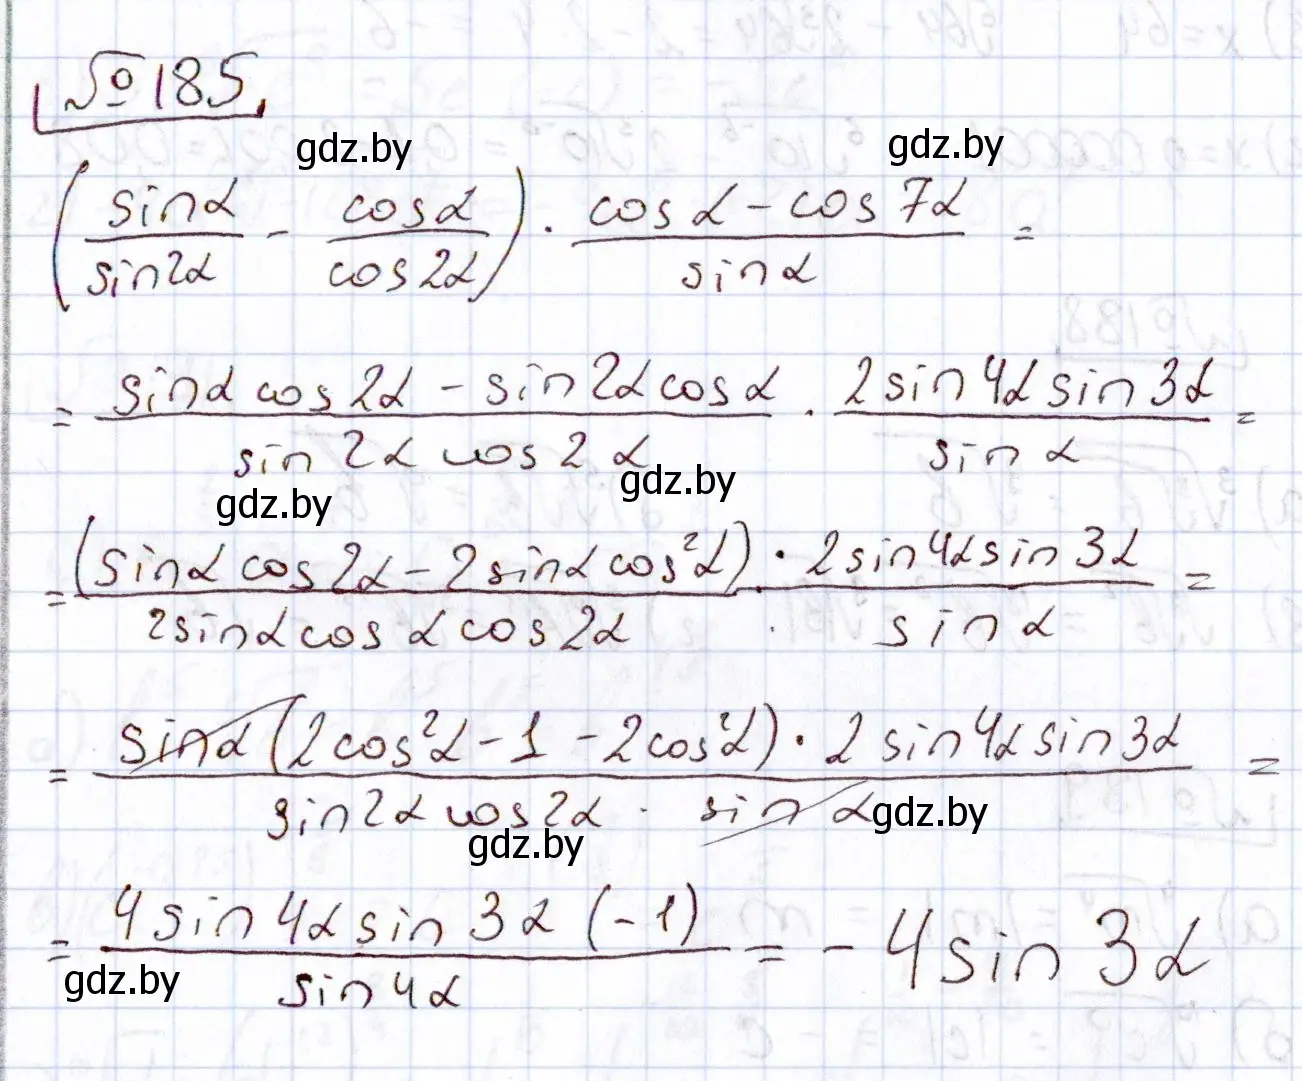 №185.
(sinα/sin2α - cosα/cos2α) · (cosα - cos7α)/sinα =
gdz.by gdz.by
= (sinα cos2α - sin2α cosα)/(sin2α cos2α) · (2sin4α sin3α)/sinα =
gdz.by gdz.by
= (sinα cos2α - 2sinα cos²α)/(2sinα cosα cos2α) · (2sin4α sin3α)/sinα =
= (sinα (2cos²α - 1 - 2cos²α) · 2sin4α sin3α)/(sin2α cos2α · sinα) =
gdz.by gdz.by
= (4sin4α sin3α (-1))/sin4α = -4sin3α
gdz.by